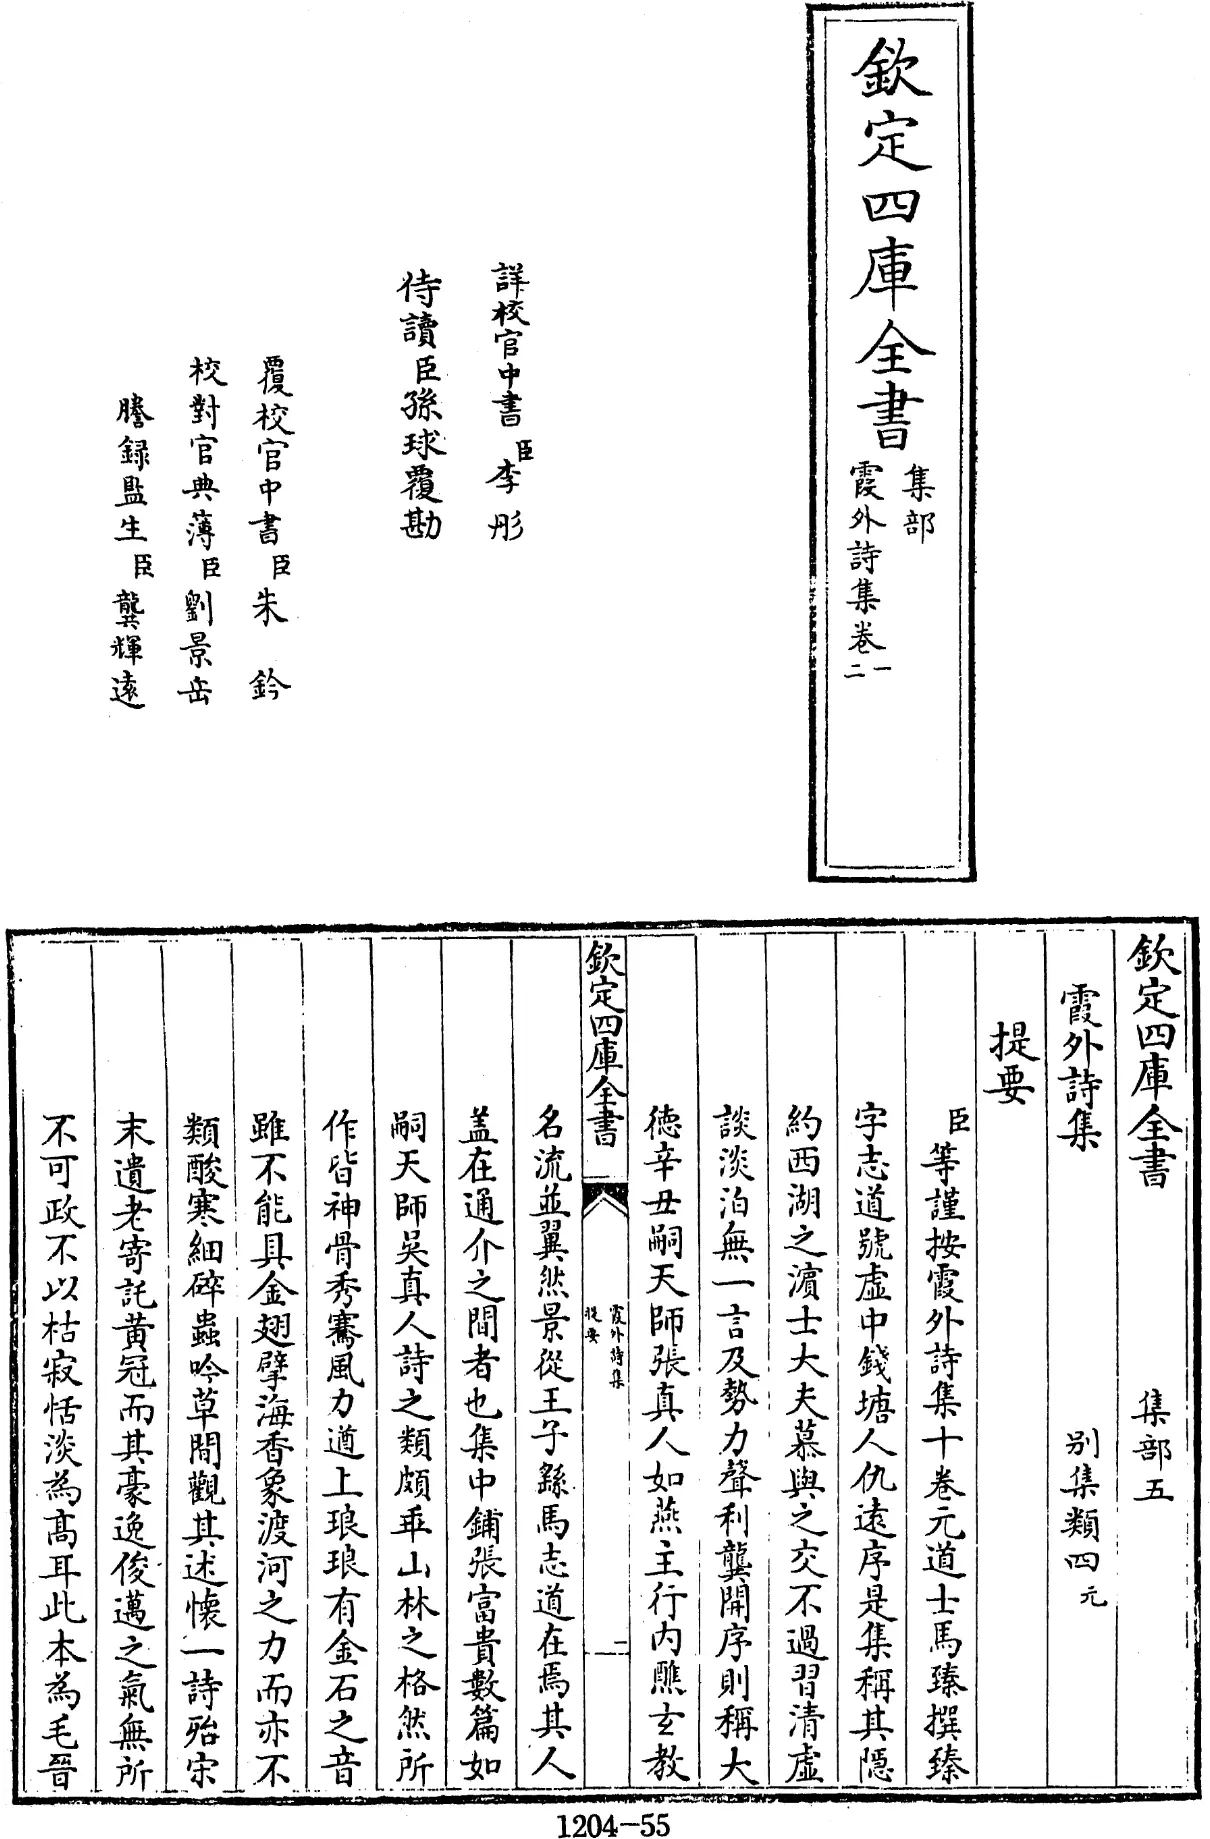 欽定四庫全書
集部
霞外詩集卷一
二
詳校官中書臣李彤
侍讀臣孫球覆勘
覆校官中書臣朱鈐
校對官典薄臣劉景岳
謄録監生臣龔輝遠
欽定四庫全書　集部五
霞外詩集　别集類四元
提要
臣等謹按霞外詩集十卷元道士馬臻撰臻
字志道號虛中錢塘人仇遠序是集稱其隱
約西湖之濵士大夫慕與之交不過習清虛
談淡泊無一言及勢力聲利龔開序則稱大
德辛丑嗣天師張真人如燕主行内醮玄教
欽定四庫全書
霞外詩集
提要
一
名流並翼然景從王子繇馬志道在焉其人
盖在通介之間者也集中鋪張富貴數篇如
嗣天師吳真人詩之類頗乖山林之格然所
作皆神骨秀騫風力遒上琅琅有金石之音
雖不能具金翅擘海香象渡河之力而亦不
類酸寒細碎蟲吟草間觀其述懷一詩殆宋
末遺老寄託黄冠而其豪逸俊邁之氣無所
不可政不以枯寂恬淡為髙耳此本為毛晉
1204-55